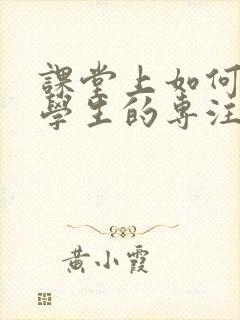 課堂上如何
學生的專注
黃小霞